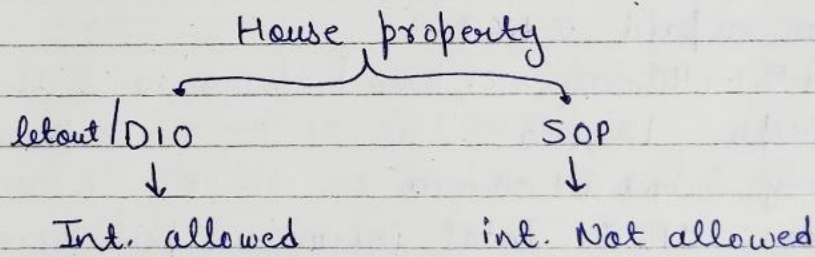 House property
letout/DIO SOP
Int. allowed int. Not allowed